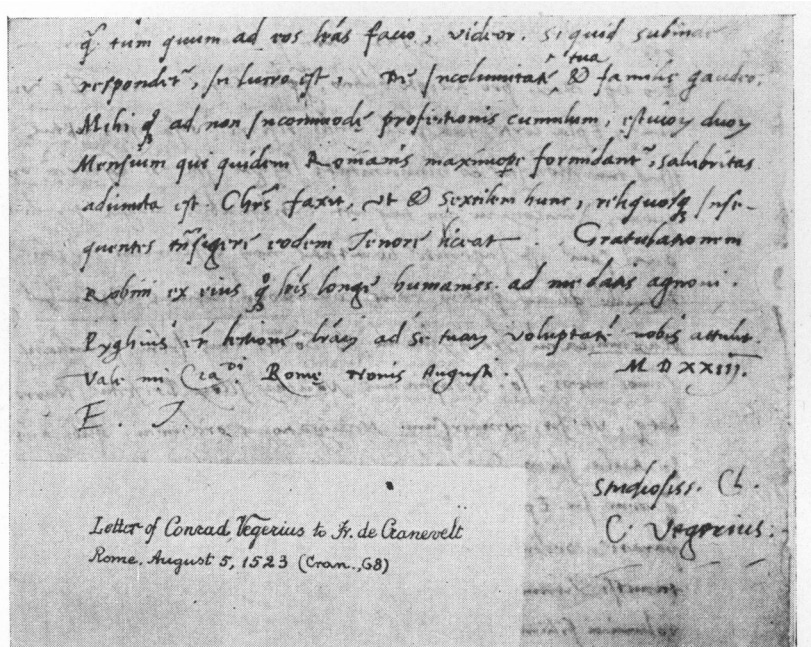 tum quum ad vos lras facio, videor. Si quid subinde
respondet, in lucro est, De Incolumitate tua & familie gaudeo.
Mihi ad non Incommode profectionis cumulum, estuoy duoy
Mensium qui quidem Romanis maximopere formidant, salubritas
adiuncta est. Chrs faxit, ut & Sextilem hunc, reliquosq Inse-
quentes eodem Tenore liceat. Gratulationem
Robini ex eius lris longe humaniss. ad me datis agnovi.
Pyghius lectione lray ad se tuay voluptate nobis attulit.
Vale mi Cra di Rome Nonis Augusti. M D XXIII.
E. T.
Studiosiss. Cl.
C. Vegerius.
Letter of Conrad Vegerius to Fr. de Cranevelt
Rome, August 5, 1523 (Cran., 68)